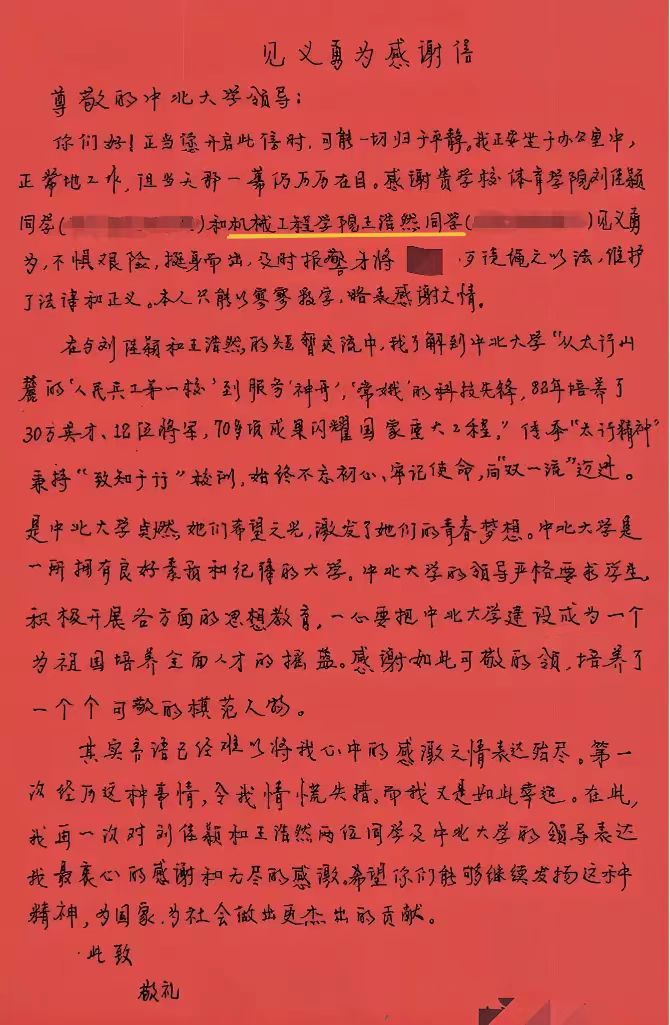 见义勇为感谢信
尊敬的中北大学领导：
你们好！正当您开启此信时，可能一切归于平静。我正安坐于办公室中，
正常地工作，但当天那一幕仍历历在目。感谢贵学校体育学院刘佳颖
同学( )和机械工程学院王浩然同学( )见义勇
为，不惧艰险，挺身而出，及时报警才将 歹徒绳之以法，维护
了法律和正义。本人只能以寥寥数字，略表感谢之情。
在与刘佳颖和王浩然的短暂交流中，我了解到中北大学“从太行山
麓的‘人民兵工第一校’到服务‘神舟’，‘常娥’的科技先锋，82年培养了
30万英才、12位将军，70多项成果闪耀国家重大工程。”传承“太行精神”
秉持“致知于行”校训，始终不忘初心、牢记使命，向“双一流”迈进。
是中北大学点燃她们希望之光，激发了她们的青春梦想。中北大学是
一所拥有良好素质和纪律的大学。中北大学的领导严格要求学生，
积极开展各方面的思想教育，一心要把中北大学建设成为一个
为祖国培养全面人才的摇篮。感谢如此可敬的领，培养了
一个个可敬的模范人物。
其实言语已经难以将我心中的感激之情表达殆尽。第一
次经历这种事情，令我惊慌失措。而我又是如此幸运。在此，
我再一次对刘佳颖和王浩然两位同学及中北大学的领导表达
我最衷心的感谢和无尽的感激。希望你们能够继续发扬这种
精神，为国家、为社会做出更杰出的贡献。
此致
敬礼